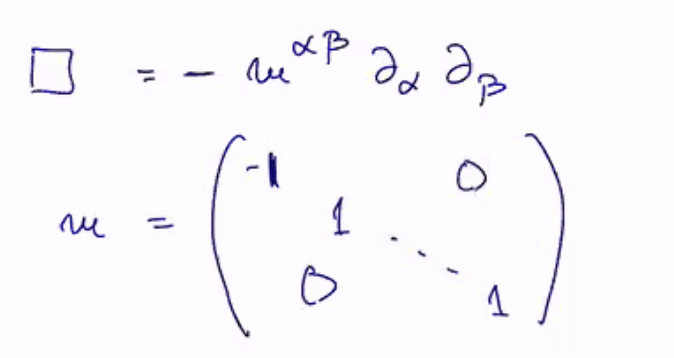 □ = - m^{αβ} ∂_α ∂_β
m = \begin{pmatrix} -1 & & & 0 \\ & 1 & & \\ & & \ddots & \\ 0 & & & 1 \end{pmatrix}